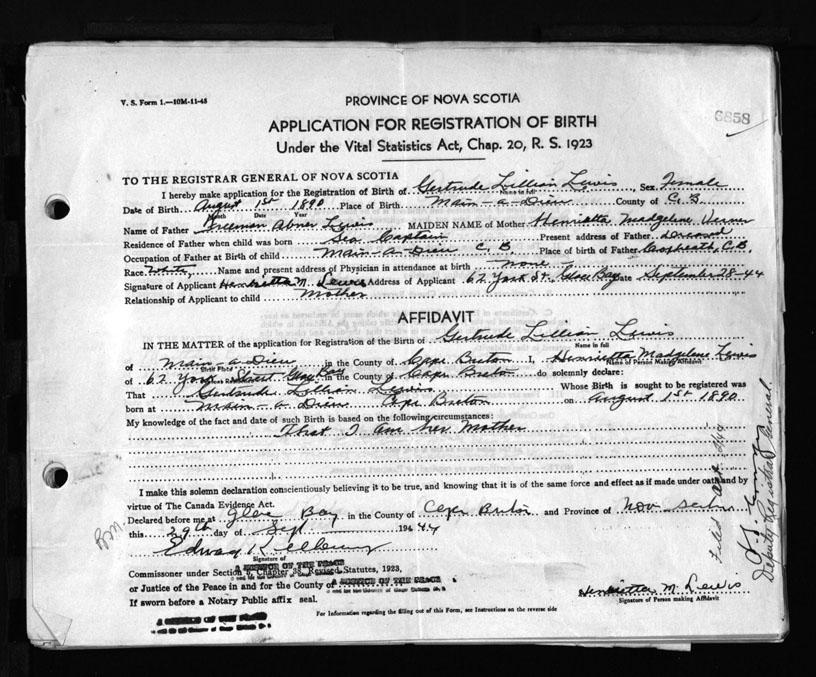 V. S. Form 1.—10M-11-45
PROVINCE OF NOVA SCOTIA
6858
APPLICATION FOR REGISTRATION OF BIRTH
Under the Vital Statistics Act, Chap. 20, R. S. 1923
TO THE REGISTRAR GENERAL OF NOVA SCOTIA
I hereby make application for the Registration of Birth of Gertrude Lillian Lewis, Sex Female
Name in full
Date of Birth August 1st 1890 Place of Birth Main-a-Dieu County of C. B.
Month Date Year
Name of Father Freeman Abner Lewis MAIDEN NAME of Mother Henrietta Madgelene
Residence of Father when child was born Sea Captain Present address of Father deceased
Occupation of Father at Birth of child Main-a-Dieu C. B. Place of birth of Father C. B.
Race White, Name and present address of Physician in attendance at birth none
Signature of Applicant Henrietta M. Lewis Address of Applicant 62 York St. Glace Bay Date September 28-44
Relationship of Applicant to child Mother
AFFIDAVIT
IN THE MATTER of the application for Registration of the Birth of Gertrude Lillian Lewis
Name in full
of Main-a-Dieu in the County of Cape Breton I, Henrietta Madgelene Lewis
Birth Place Name of Person Making Affidavit
of 62 York Street Glace Bay in the County of Cape Breton do solemnly declare:
That Gertrude Lillian Lewis Whose Birth is sought to be registered was
born at Main-a-Dieu Cape Breton on August 1st 1890
My knowledge of the fact and date of such Birth is based on the following circumstances:
That I am her Mother
I make this solemn declaration conscientiously believing it to be true, and knowing that it is of the same force and effect as if made under oath and by
virtue of The Canada Evidence Act.
Declared before me at Glace Bay in the County of Cape Breton and Province of Nova Scotia
this 29th day of Sept 1944
Edward
Signature of
Commissioner under Section 6, Chapter 38, Revised Statutes, 1923,
or Justice of the Peace in and for the County of
If sworn before a Notary Public affix seal.
Henrietta M. Lewis
Signature of Person making Affidavit
For Information regarding the filling out of this Form, see Instructions on the reverse side
Filed
Deputy Registrar General